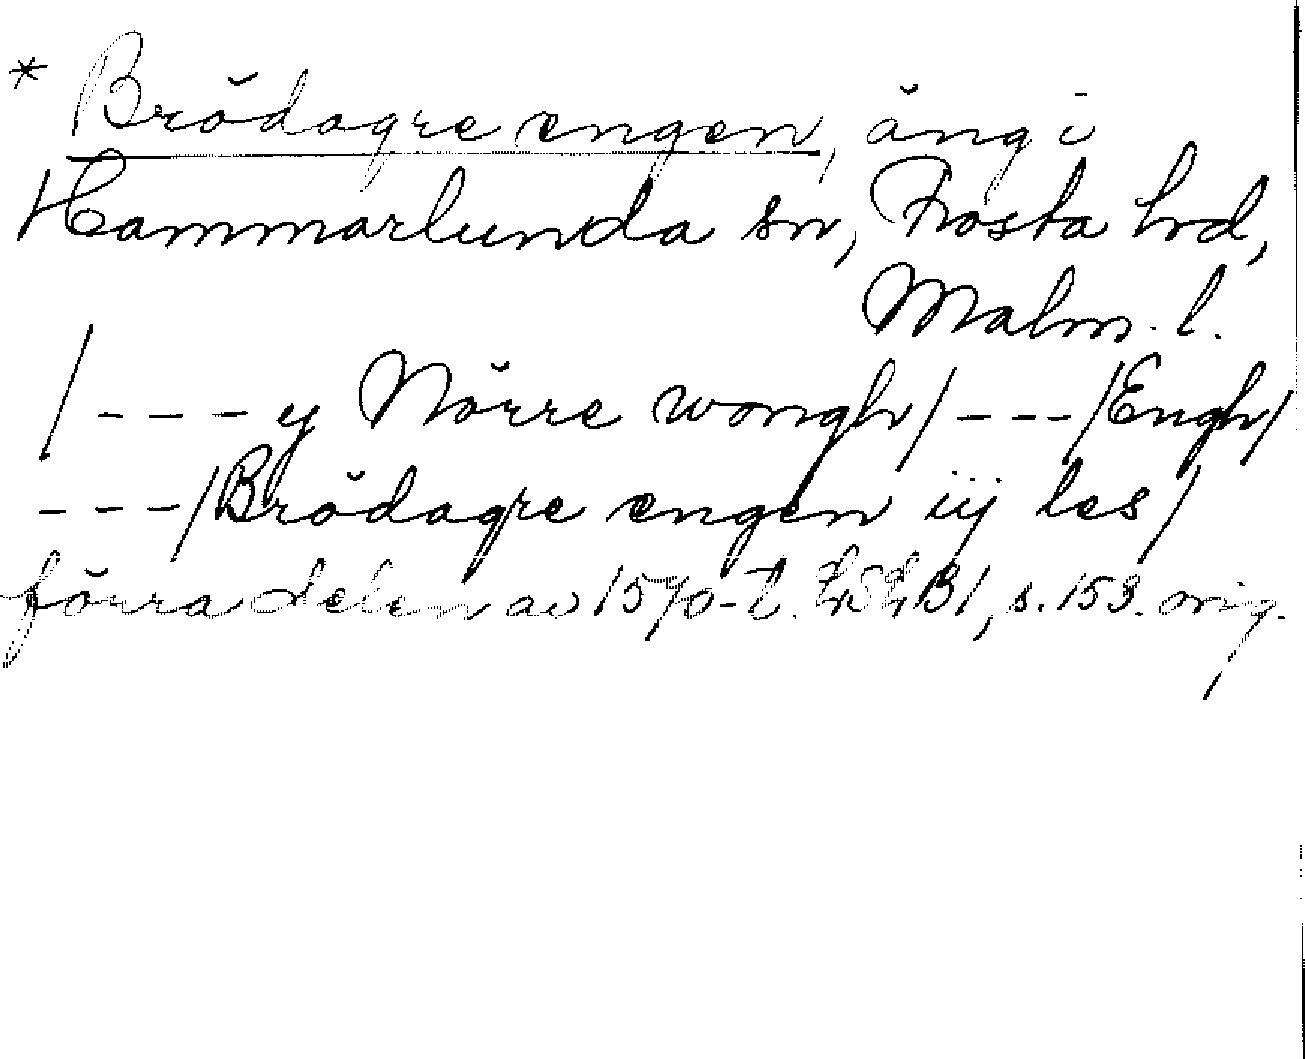 * Brödagre engen, äng i
Hammarlunda sn, Frosta hd,
Malm. l.
/ - - - y Nörre wongh / - - - / Engh /
- - - / Brödagre engen iij les /
förra delen av 1570-t. LSLB1, s. 153. orig.